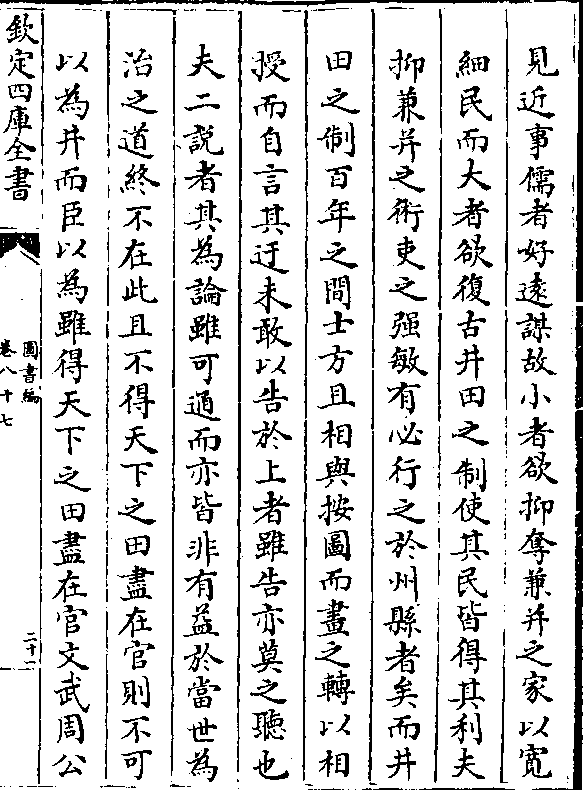 見近事儒者好逺謀故小者欲抑奪兼并之家以寛
細民而大者欲復古井田之制使其民皆得其利夫
抑兼并之術吏之强敏有必行之於州縣者矣而井
田之制百年之間士方且相與按圖而畫之轉以相
授而自言其迂未敢以告於上者雖告亦莫之聽也
夫二説者其為論雖可通而亦皆非有益於當世為
治之道終不在此且不得天下之田盡在官則不可
以為井而臣以為雖得天下之田盡在官文武周公
欽定四庫全書
圖書編
卷八十七
二十一